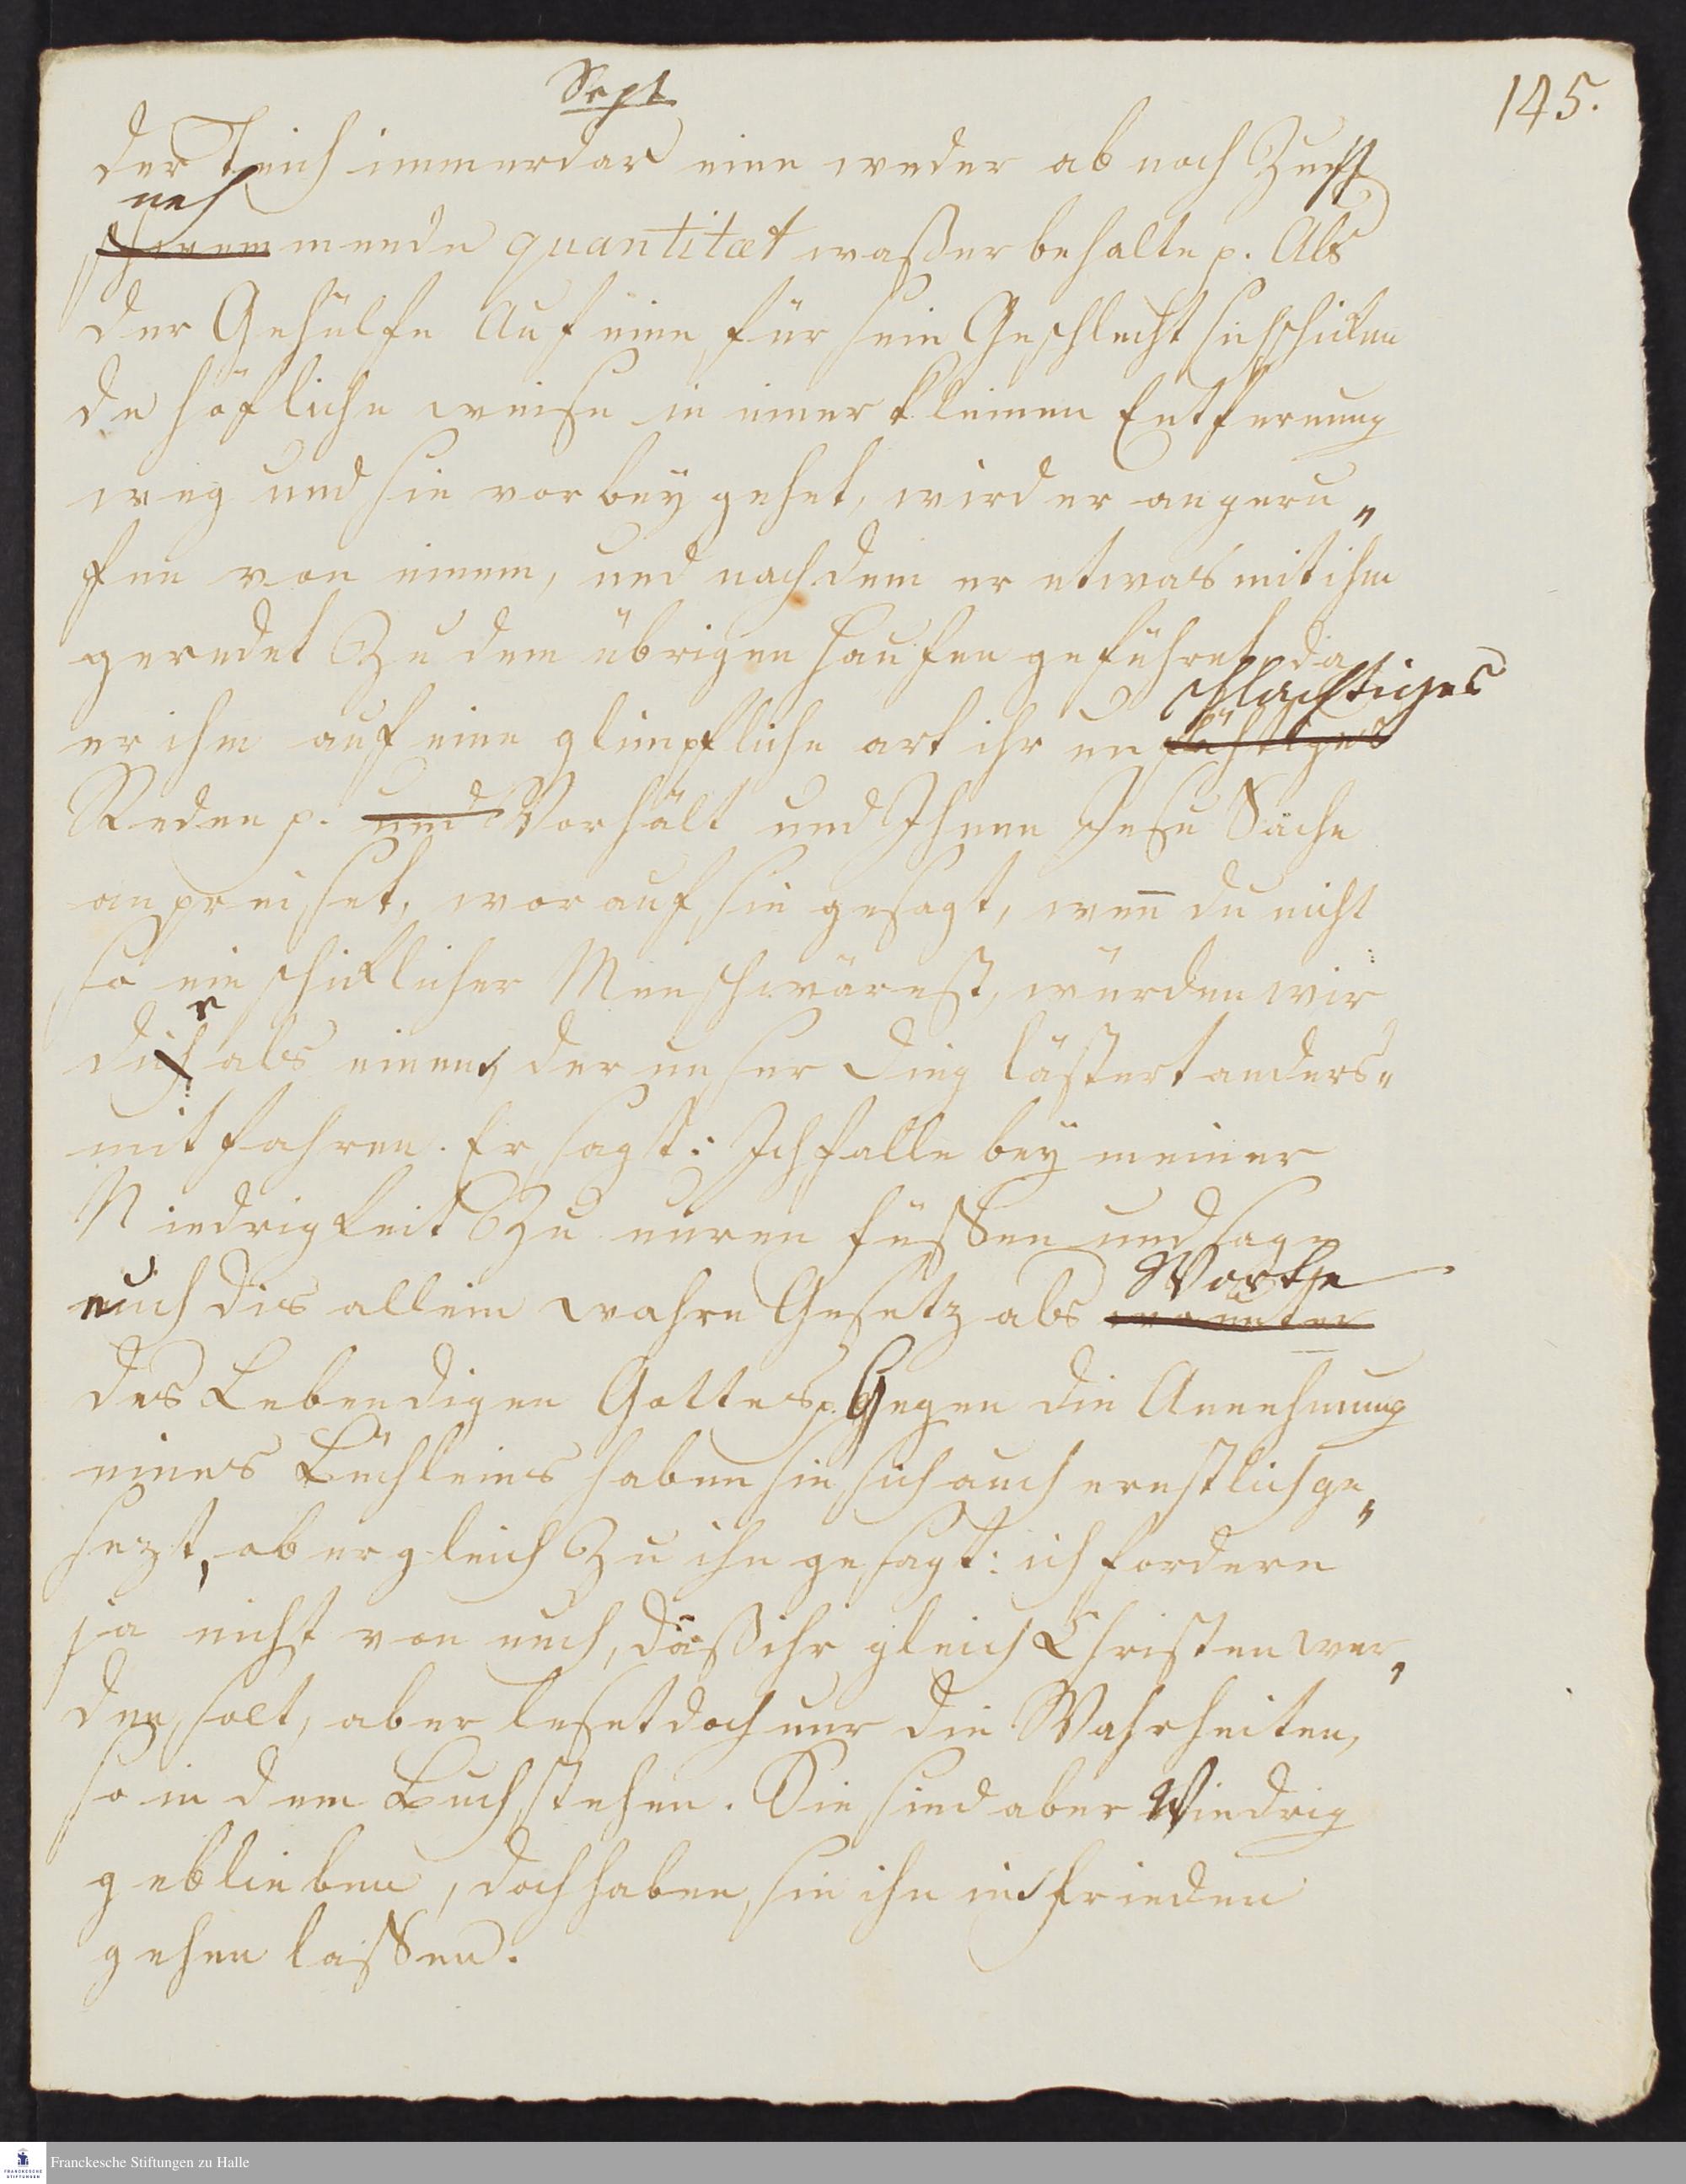 Sept
145.
der Teich immerdar eine weder ab noch Zu
neh
mmende quantitæt waßer behalte p. Als
der Gehülfe Auf eine für sein Geschlecht sich schicken
de höfliche weise in einer kleinen Entfernung
weg und sie vorbey gehet, wird er angeru„
fen von einem, und nachdem er etwas mit ihm
geredet Zu dem übrigen Haufen geführet, da
schlachtiges
er ihm auf eine glimpfliche art ihr un
Reden p. und Vorhält und Ihnen Jesu Sache
anpreiset, worauf sie gesagt, wen̄ du nicht
so ein schicklicher Mensch wärest, würden wir
r
dich als einen, der unser Ding lästert anders„
mit fahren. Er sagt: Ich falle bey meiner
Niedrigkeit Zu euren füßen und sage
Worte
euch dis allein wahre Gesetz als
des Lebendigen Gottes p. Gegen die Annehmung
eines Büchleins haben sie sich auch ernstlich ge„
sezt, ob er gleich Zu ihn gesagt: ich fordere
ja nicht von euch, daß ihr gleich Christen wer„
den solt, aber leset doch nur die Wahrheiten,
so in dem Buch stehen. Sie sind aber Wiedrig
geblieben, doch haben sie ihn in Frieden
gehen laßen.
Franckesche Stiftungen zu Halle
FRANCKESCHE
STIFTUNGEN